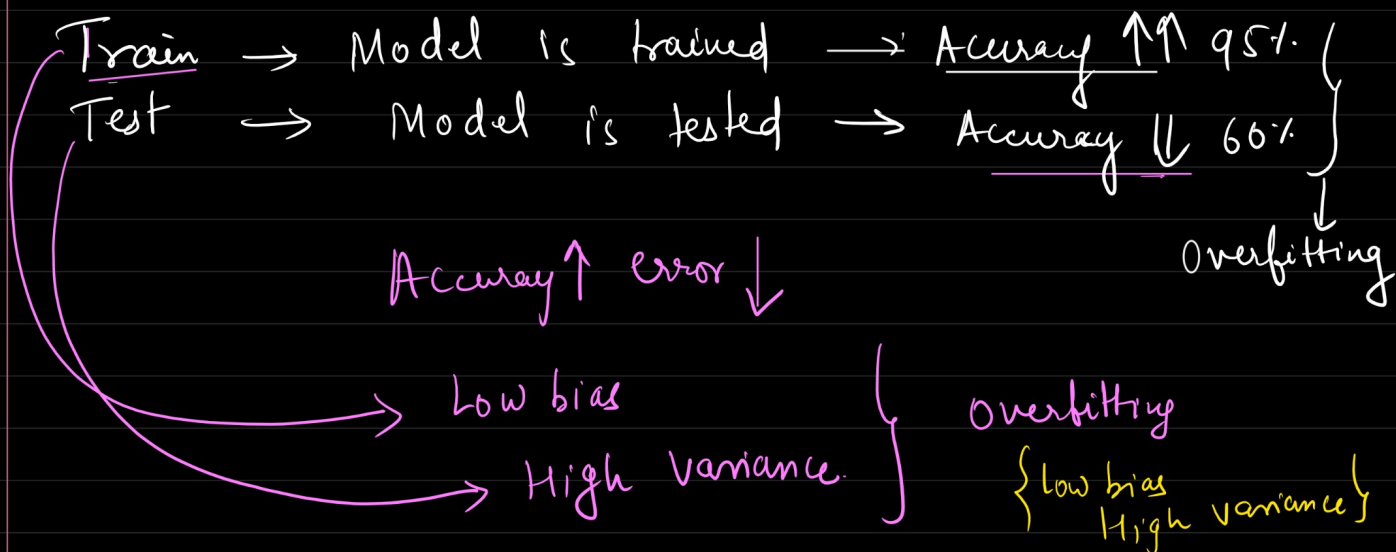 Train → Model is trained → Accuracy ↑↑ 95%
Test → Model is tested → Accuray ↓↓ 60%
↓
Overfitting
Accuray ↑ error ↓
Low bias
High variance.
Overfitting
{Low bias
High variance}